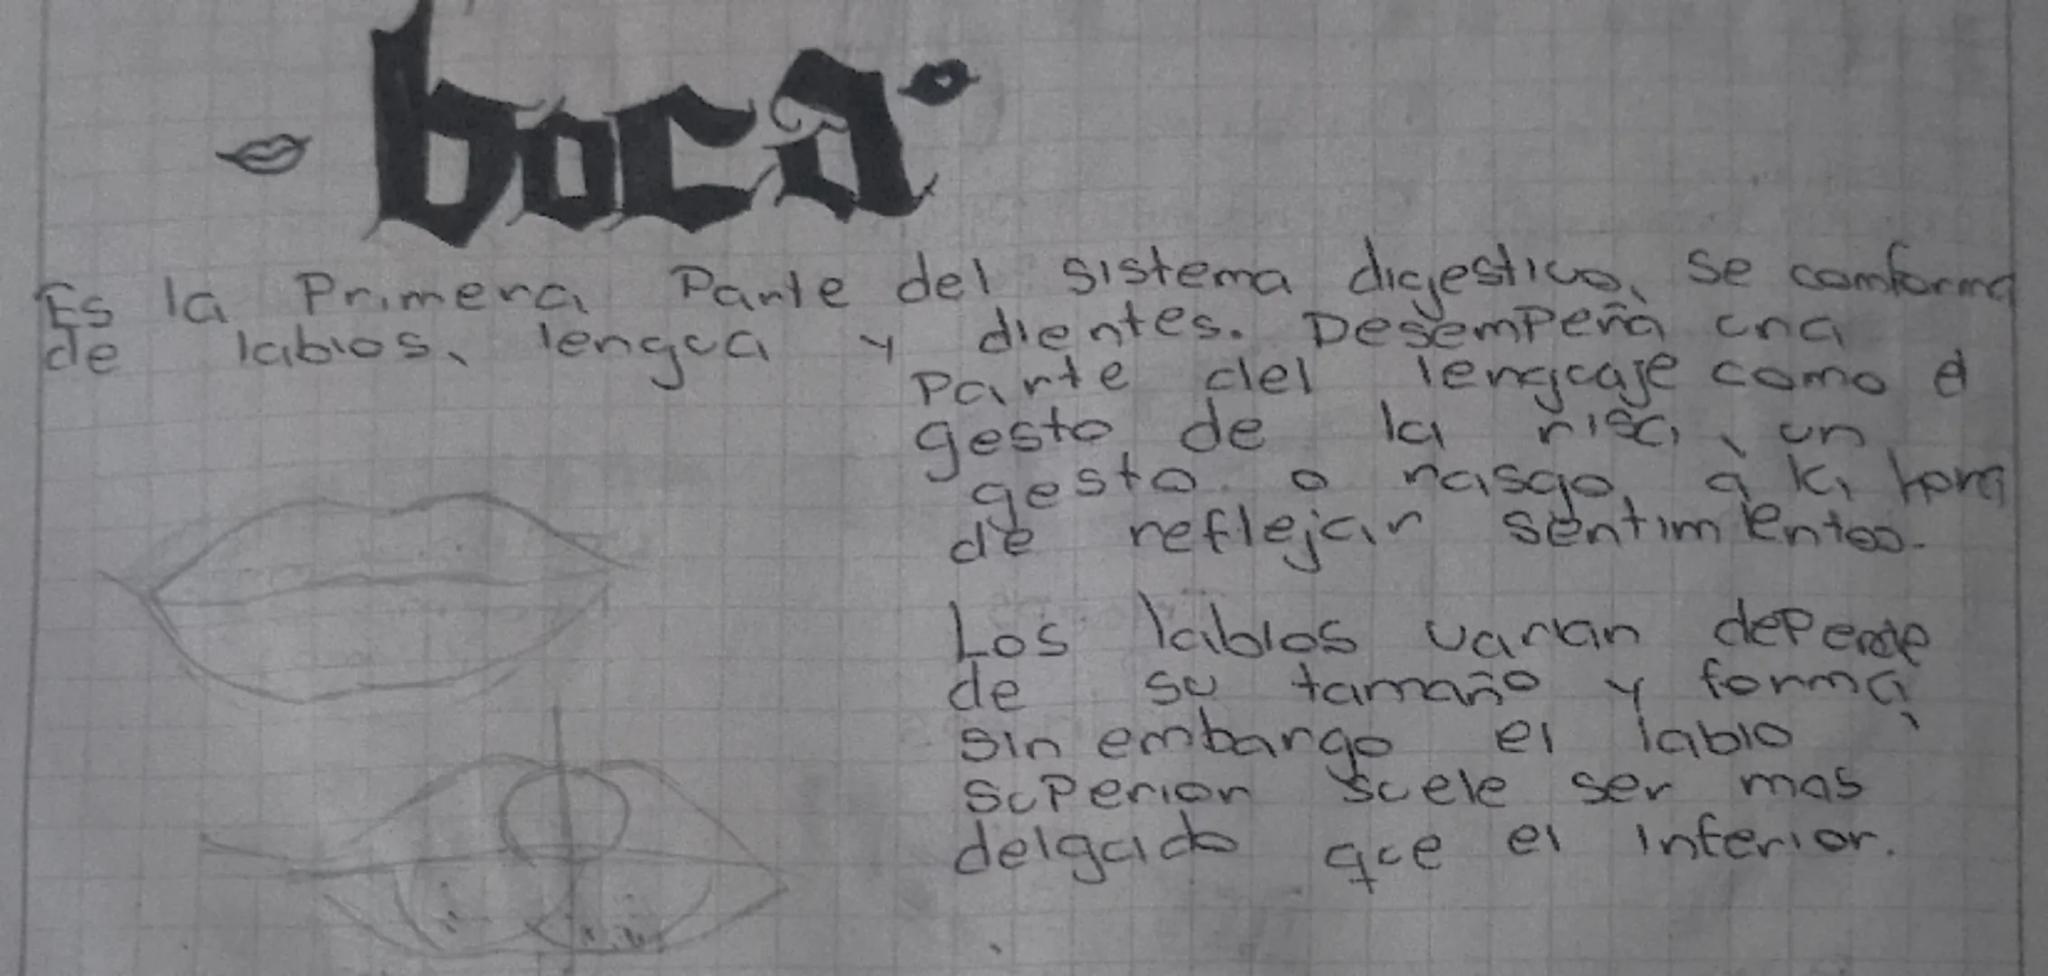 boca
Es la Primera Parte del sistema digestivo, se comforma
de labios, lengua y dientes. Desempeña una
Parte del lenguaje como el
gesto de la risa, un
gesto o rasgo, a la hora
de reflejar sentimientos.
Los labios varian depende
de su tamaño y forma,
sin embargo el labio
superior suele ser mas
delgado que el inferior.